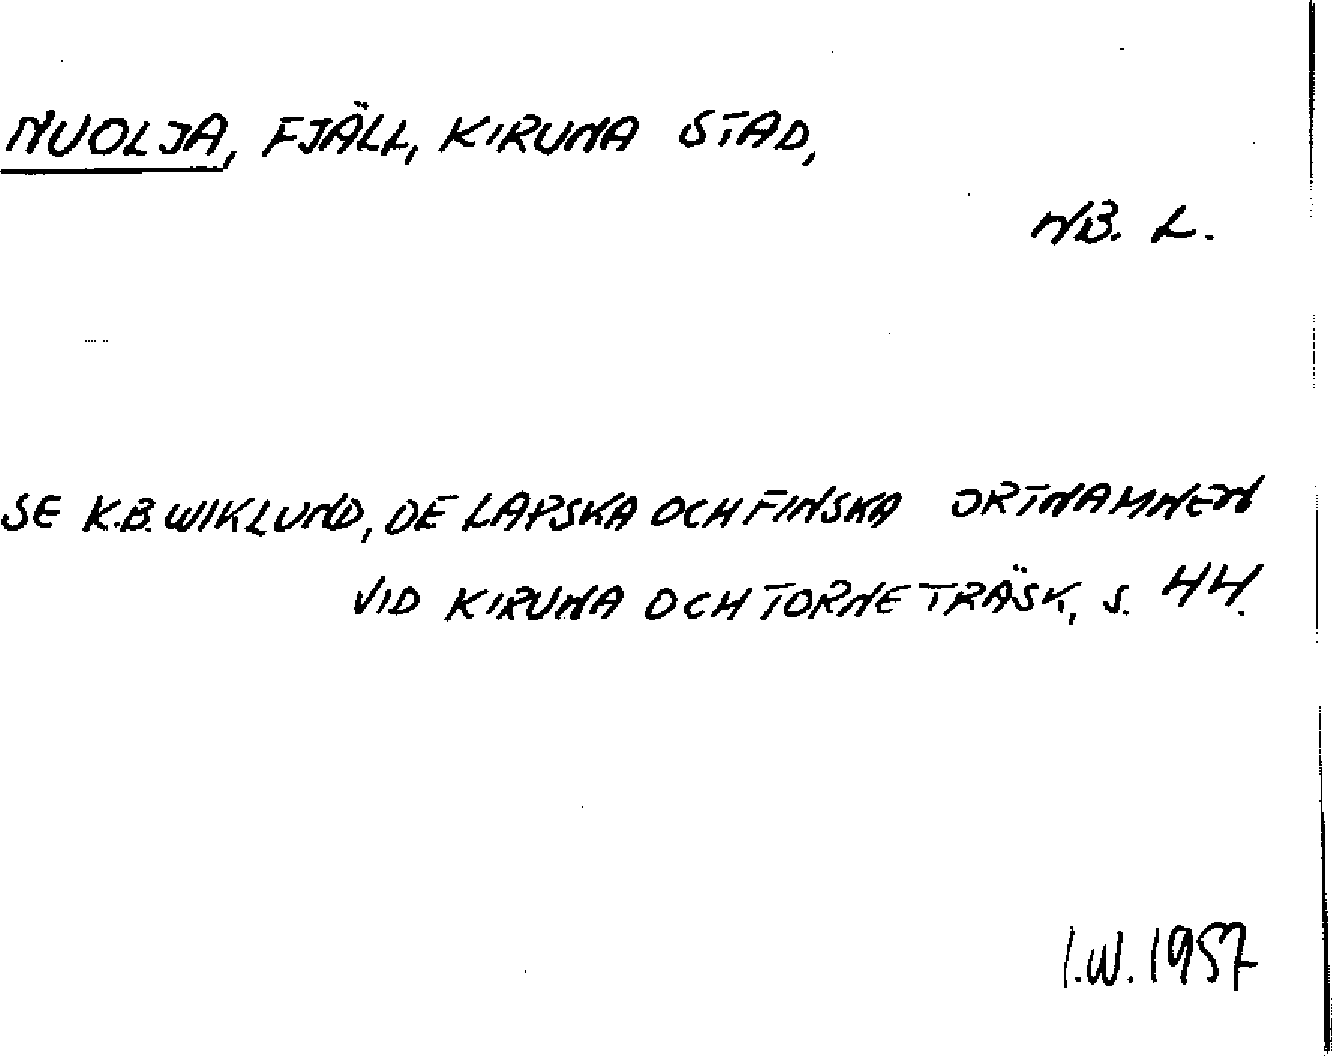 NUOLJA, FJÄLL, KIRUNA STAD,
NB. L.
SE K.B. WIKLUND, DE LAPSKA OCH FINSKA ORTNAMNEN
VID KIRUNA OCH TORNE TRÄSK, S. 44.
I.W. 1957